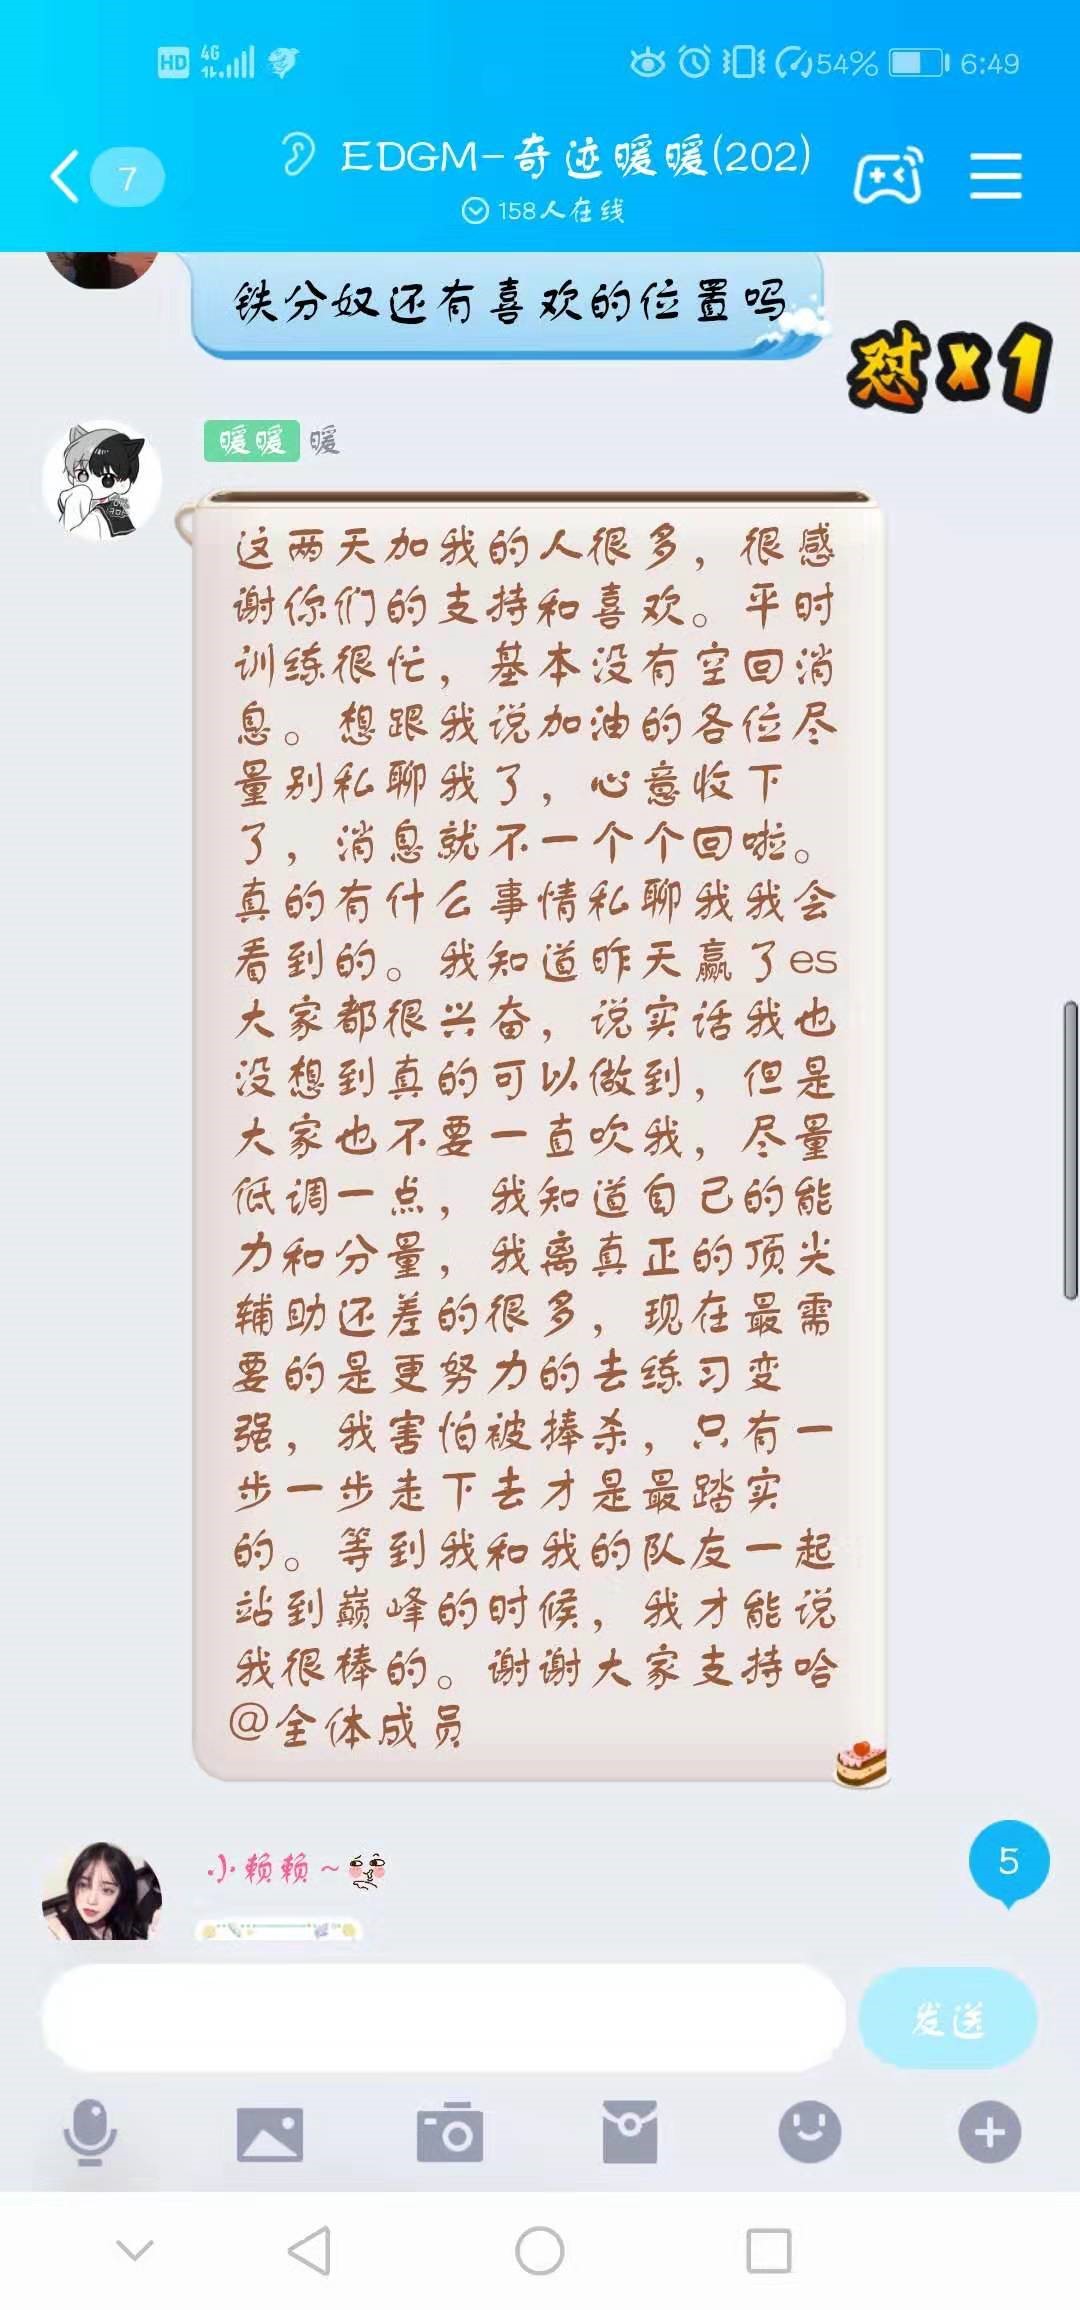 HD 4G 54% 6:49
7 EDGM-奇迹暖暖(202)
158人在线
铁分奴还有喜欢的位置吗
怼x1
暖暖 暖
这两天加我的人很多，很感
谢你们的支持和喜欢。平时
训练很忙，基本没有空回消
息。想跟我说加油的各位尽
量别私聊我了，心意收下
了，消息就不一个个回啦。
真的有什么事情私聊我我会
看到的。我知道昨天赢了es
大家都很兴奋，说实话我也
没想到真的可以做到，但是
大家也不要一直吹我，尽量
低调一点，我知道自己的能
力和分量，我离真正的顶尖
辅助还差的很多，现在最需
要的是更努力的去练习变
强，我害怕被捧杀，只有一
步一步走下去才是最踏实
的。等到我和我的队友一起
站到巅峰的时候，我才能说
我很棒的。谢谢大家支持哈
@全体成员
小赖赖~
5
发送